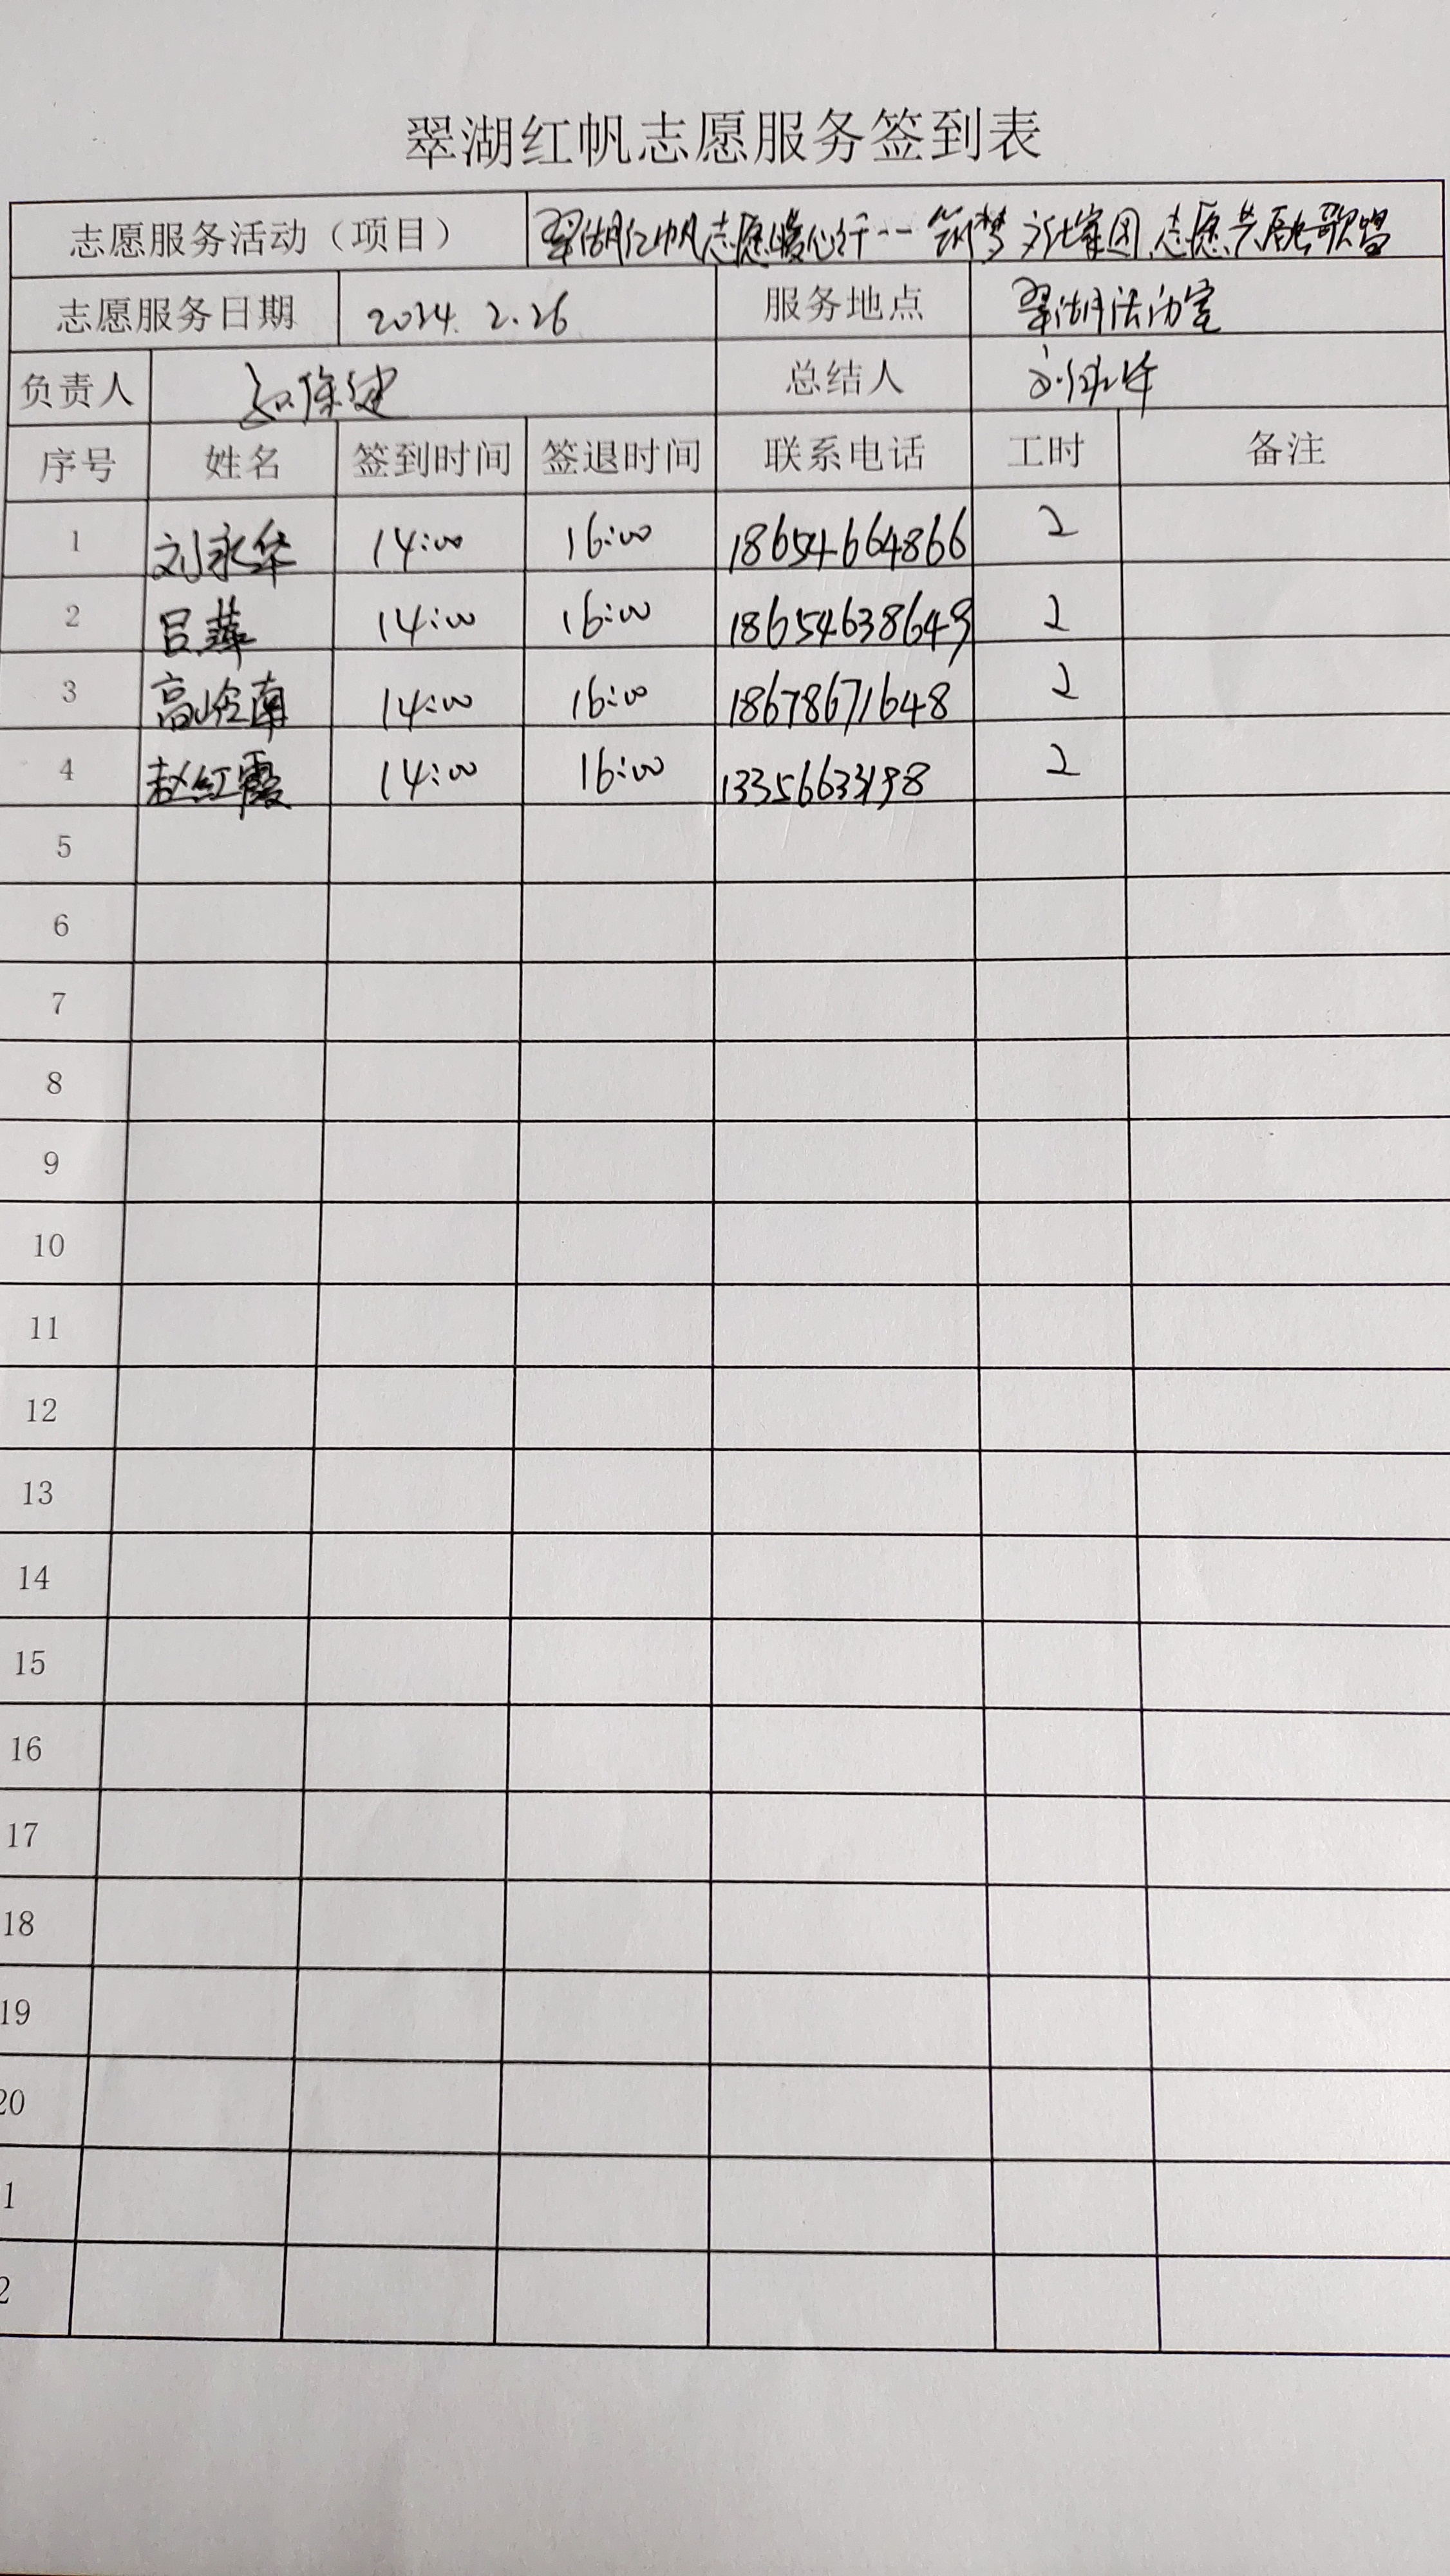 翠湖红帆志愿服务签到表
志愿服务活动（项目） 翠湖红帆志愿暖心行--筑梦文化家园.志愿共融歌唱
志愿服务日期 2024.2.26 服务地点 翠湖活动室
负责人 总结人 刘永华
序号 姓名 签到时间 签退时间 联系电话 工时 备注
1 刘永华 14:00 16:00 18654664866 2
2 吕燕 14:00 16:00 18654638649 2
3 高岭南 14:00 16:00 18678671648 2
4 赵红霞 14:00 16:00 13356633198 2
5
6
7
8
9
10
11
12
13
14
15
16
17
18
19
20
1
2